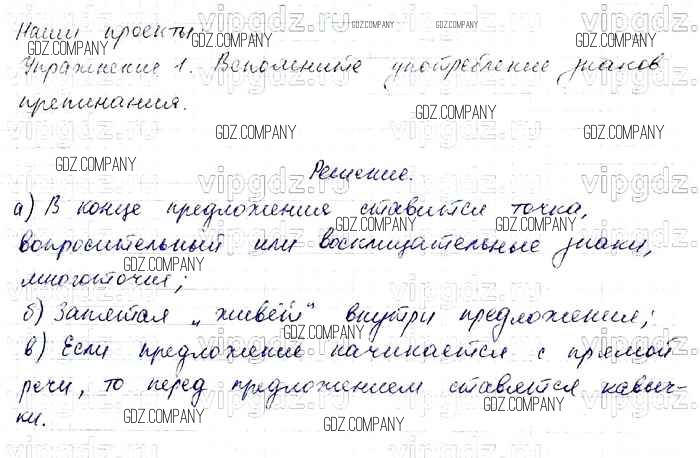 Наши проекты.
Упражнение 1. Вспомните употребление знаков
препинания.
Решение.
а) В конце предложения ставится точка,
вопросительный или восклицательные знаки,
многоточия;
б) Запятая „живёт“ внутри предложения;
в) Если предложение начинается с прямой
речи, то перед предложением ставятся кавыч-
ки.